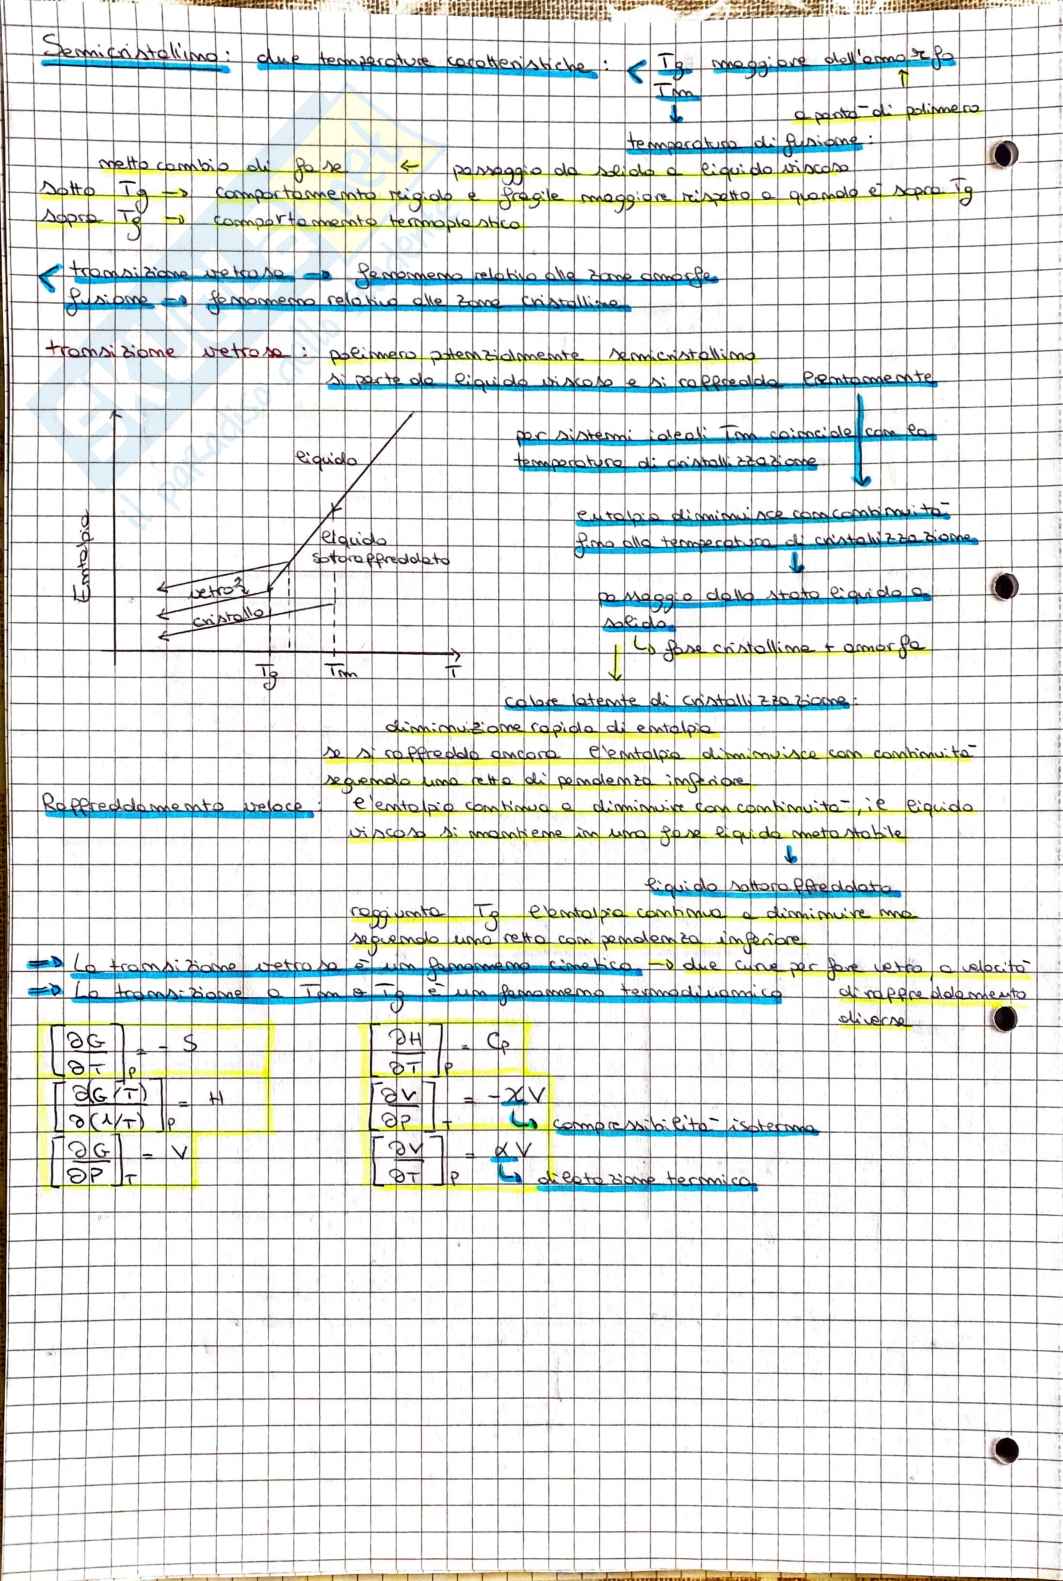 Semicristallino: due temperature caratteristiche: < Tg maggiore dell'amorfo
Tm
a parità di polimero
temperatura di fusione:
netto cambio di fase ← passaggio da solido a liquido viscoso
sotto Tg → comportamento rigido e fragile maggiore rispetto a quando è sopra Tg
sopra Tg → comportamento termoplastico
< transizione vetrosa → fenomeno relativo alle zone amorfe
fusione → fenomeno relativo alle zone cristalline
transizione vetrosa: polimero potenzialmente semicristallino
si parte da liquido viscoso e si raffredda lentamente
per sistemi ideali Tm coincide con la
temperatura di cristallizzazione
entalpia diminuisce con continuità
fino alla temperatura di cristallizzazione
passaggio dallo stato liquido a
solido
↳ fase cristallina + amorfa
Entalpia
liquido
liquido
sottoraffreddato
vetro 2
cristallo
Tg Tm T
calore latente di cristallizzazione:
diminuzione rapida di entalpia
se si raffredda ancora l'entalpia diminuisce con continuità
seguendo una retta di pendenza inferiore
Raffreddamento veloce: l'entalpia continua a diminuire con continuità, il liquido
viscoso si mantiene in una fase liquida metastabile
liquido sottoraffreddato
raggiunta Tg l'entalpia continua a diminuire ma
seguendo una retta con pendenza inferiore
⇒ La transizione vetrosa è un fenomeno cinetico → due curve per fare vetro, a velocità
di raffreddamento
diverse
⇒ La transizione a Tm e Tg è un fenomeno termodinamico
[∂G/∂T]P = - S [∂H/∂T]P = Cp
[∂(G/T)/∂(1/T)]P = H [∂V/∂P]T = -χV
↳ compressibilità isoterma
[∂G/∂P]T = V [∂V/∂T]P = αV
↳ dilatazione termica